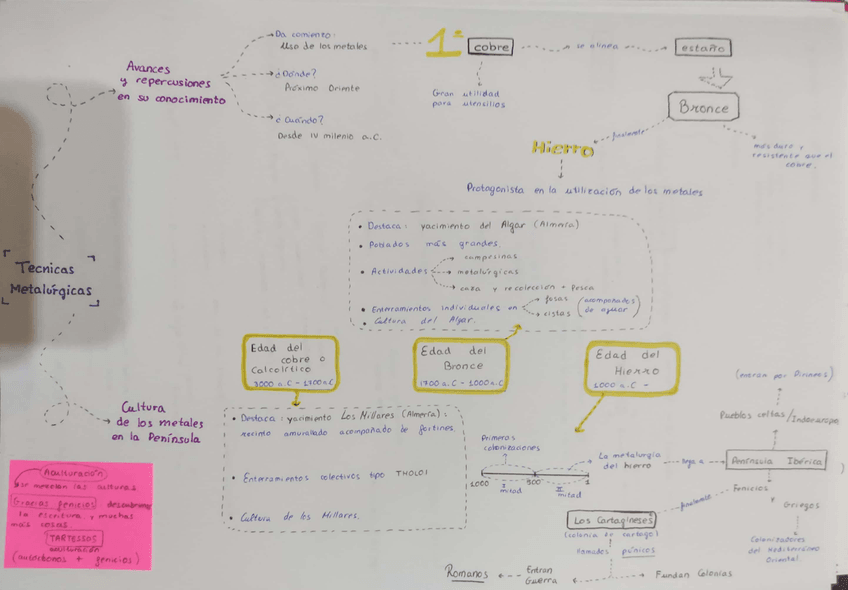 Da comiento:
Uso de los metales
1º
cobre
se alinea
estaño
Avances
y repercusiones
en su conocimiento
¿Dónde?
Próximo Oriente
Gran utilidad
para utensilios
Bronce
¿Cuándo?
Desde IV milenio a.C.
finalmente
más duro y
resistente que el
cobre.
Hierro
Protagonista en la utilización de los metales
Tecnicas
Metalúrgicas
• Destaca: yacimiento del Algar (Almería)
• Poblados más grandes.
• Actividades
campesinas
metalúrgicas
caza y recolección + Pesca
• Enterramientos individuales en
fosas
cistas
(acompañados
de ajuar)
• Cultura del Algar.
Edad del
cobre o
Calcolítico
3000 a.C - 1700 a.C
Edad del
Bronce
1700 a.C - 1000 a.C
Edad del
Hierro
1000 a.C -
Cultura
de los metales
en la Península
• Destaca: yacimiento Los Millares (Almería):
recinto amurallado acompañado de fortines.
• Enterramientos colectivos tipo THOLOI
• Cultura de los Millares.
Primeros
colonizadores
1000
500
1
I
mitad
II
mitad
La metalurgia
del hierro
llega a
(entran por Pirineos)
Pueblos celtas/Indoeuropeo
Península Ibérica
Fenicios
Griegos
Colonizadores
del Mediterráneo
Oriental.
finalmente
Los Cartagineses
(colonia de cartago)
llamados púnicos
Fundan Colonias
Entran
Guerra
Romanos
Aculturación
se mezclan las culturas
Gracias fenicios descubrimos
la escritura y muchas
más cosas.
TARTESSOS
aculturación
(autóctonos + fenicios)